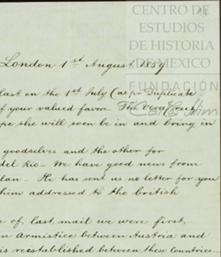 CENTRO DE
ESTUDIOS
DE HISTORIA
DE MEXICO
FUNDACIÓN
London 1st August 1859
last on the 1st July Cas p. Duplicate
of your valued favor. The Vera Cruz
pe she will soon be in and bring in
goodselves and the other for
del Rio - We have good news from
lan. He has sent us no letter for you
him addressed to the British
e of last mail we were first,
n Armistice between Austria and
is reestablished between these Countries